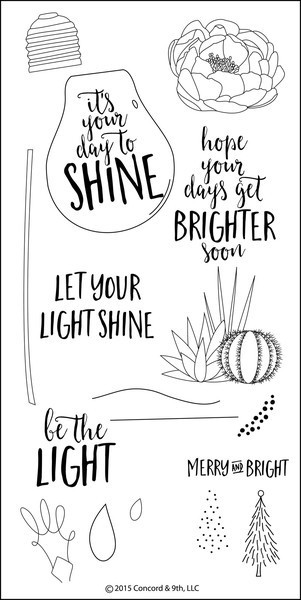 it's
your
day to
SHINE
hope
your
days get
BRIGHTER
soon
LET YOUR
LIGHT SHINE
be the
LIGHT
MERRY AND BRIGHT
© 2015 Concord & 9th, LLC